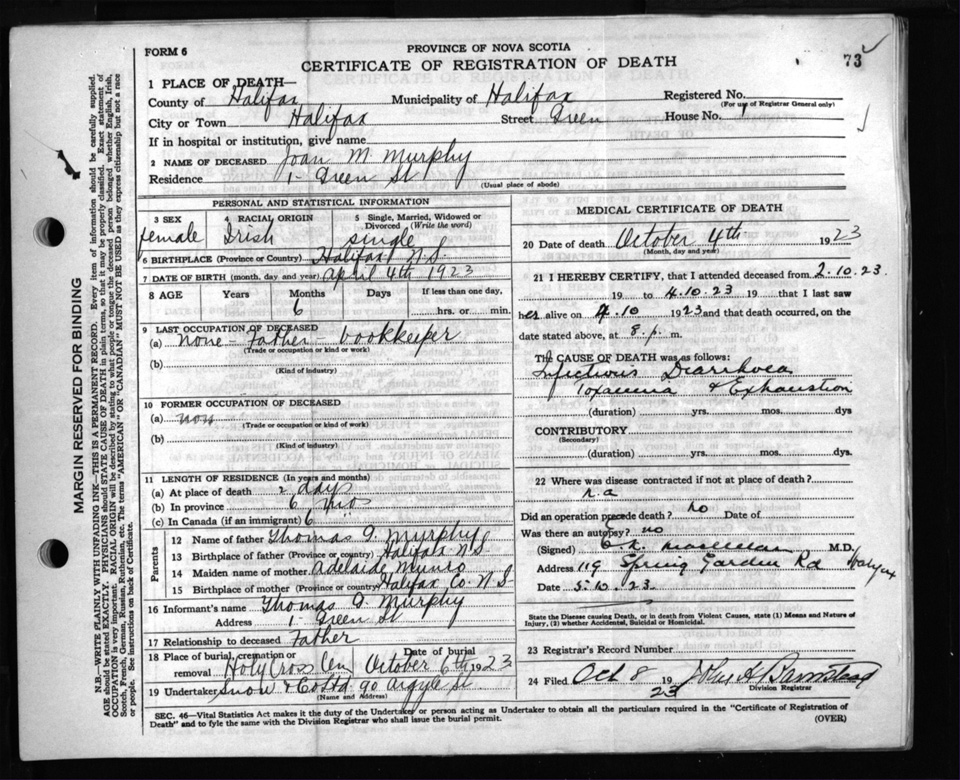 FORM 6
PROVINCE OF NOVA SCOTIA
CERTIFICATE OF REGISTRATION OF DEATH
73
1 PLACE OF DEATH—
County of Halifax Municipality of Halifax Registered No.
(For use of Registrar General only)
City or Town Halifax Street Green House No. 1
If in hospital or institution, give name
2 NAME OF DECEASED Joan M. Murphy
Residence 1- Green St
(Usual place of abode)
PERSONAL AND STATISTICAL INFORMATION
3 SEX 4 RACIAL ORIGIN 5 Single, Married, Widowed or Divorced (Write the word)
female Irish single
6 BIRTHPLACE (Province or Country) Halifax N.S.
7 DATE OF BIRTH (month, day, and year) April 4th 1923
8 AGE Years Months Days If less than one day,
6 hrs. or min.
9 LAST OCCUPATION OF DECEASED
(a) none - Father - bookkeeper
(Trade or occupation or kind of work)
(b)
(Kind of industry)
10 FORMER OCCUPATION OF DECEASED
(a)
(Trade or occupation or kind of work)
(b)
(Kind of industry)
11 LENGTH OF RESIDENCE (In years and months)
(a) At place of death 2 days
(b) In province 6 mos
(c) In Canada (if an immigrant) 6
Parents
12 Name of father Thomas J. Murphy
13 Birthplace of father (Province or country) Halifax N.S.
14 Maiden name of mother Adelaide Munro
15 Birthplace of mother (Province or country) Halifax Co N.S
16 Informant's name Thomas J. Murphy
Address 1- Green St
17 Relationship to deceased Father
18 Place of burial, cremation or removal Holy Cross Cem Date of burial October 6th 1923
19 Undertaker Snow & Co Ltd 90 Argyle St.
(Name and Address)
MEDICAL CERTIFICATE OF DEATH
20 Date of death October 4th 1923
(Month, day and year)
21 I HEREBY CERTIFY, that I attended deceased from 2.10.23.
19 to 4.10.23 19 that I last saw
her alive on 4.10 1923 and that death occurred, on the
date stated above, at 8. p. m.
The CAUSE OF DEATH was as follows:
Infectious Diarrhoea
Toxaemia & Exhaustion
(duration) yrs. mos. dys
CONTRIBUTORY
(Secondary)
(duration) yrs. mos. dys.
22 Where was disease contracted if not at place of death?
n.a
Did an operation precede death? No Date of
Was there an autopsy? no
(Signed) M.D.
Address 119 Spring Garden Rd Halifax
Date 5.10.23.
State the Disease causing Death, or in death from Violent Causes, state (1) Means and Nature of
Injury, (2) whether Accidental, Suicidal or Homicidal.
23 Registrar's Record Number
24 Filed Oct 8 1923 John A Barnstead
Division Registrar
SEC. 46—Vital Statistics Act makes it the duty of the Undertaker or person acting as Undertaker to obtain all the particulars required in the "Certificate of Registration of
Death" and to fyle the same with the Division Registrar who shall issue the burial permit.
(OVER)
MARGIN RESERVED FOR BINDING
N.B.—WRITE PLAINLY WITH UNFADING INK—THIS IS A PERMANENT RECORD. Every item of information should be carefully supplied.
AGE should be stated EXACTLY. PHYSICIANS should STATE CAUSE OF DEATH in plain terms, so that it may be properly classified. Exact statement of
OCCUPATION is very important. RACIAL ORIGIN will be described by stating to what people or tongue the deceased person belonged whether English, Irish,
Scotch, French, German, Russian, Ruthenian, etc. The terms "AMERICAN" OR "CANADIAN" MUST NOT BE USED as they express citizenship but not a race
or people. See instructions on back of Certificate.